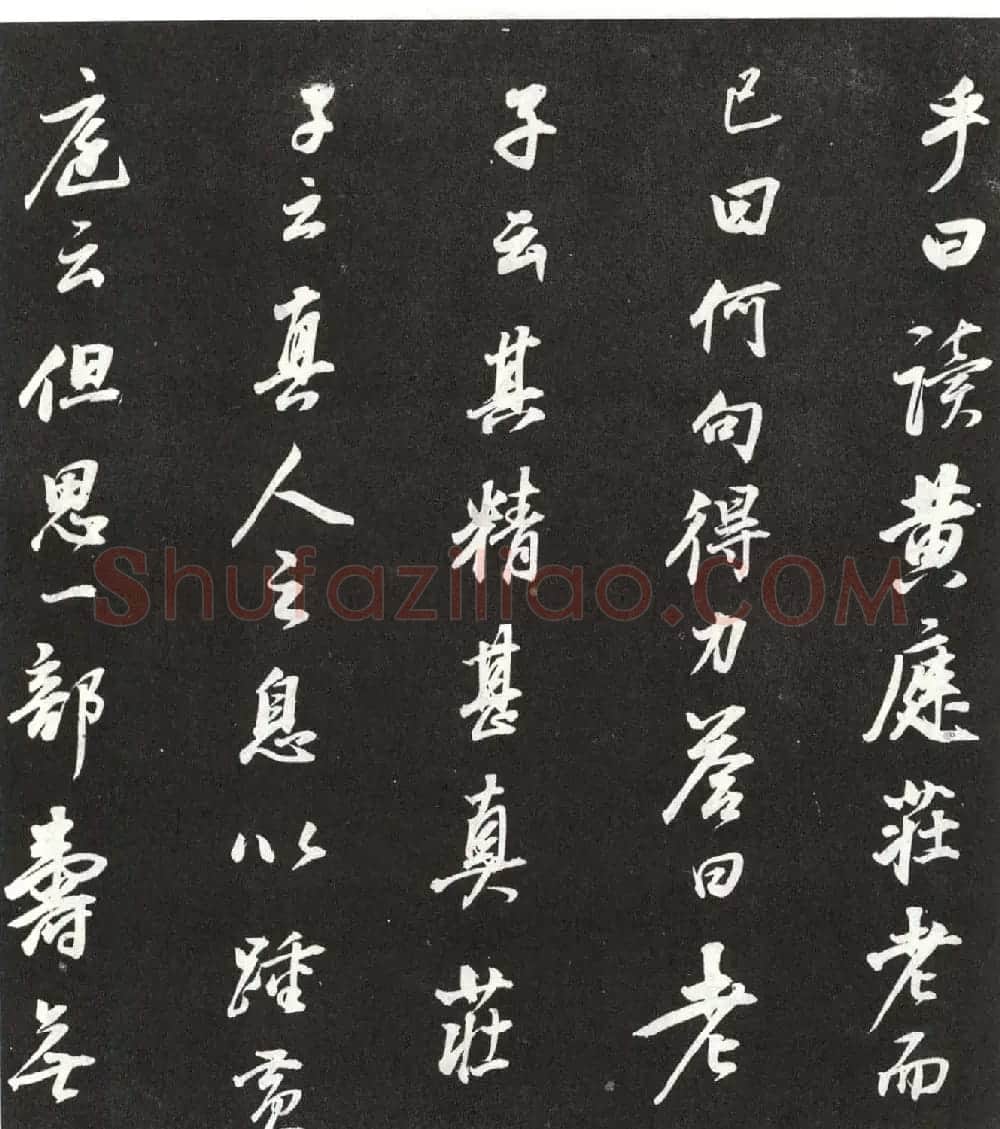 乎曰读黄庭莊老而
已曰何句得力答曰老
子云其精甚真莊
子云真人之息以踵黄
庭云但思一部壽無
Shufaziliao.COM